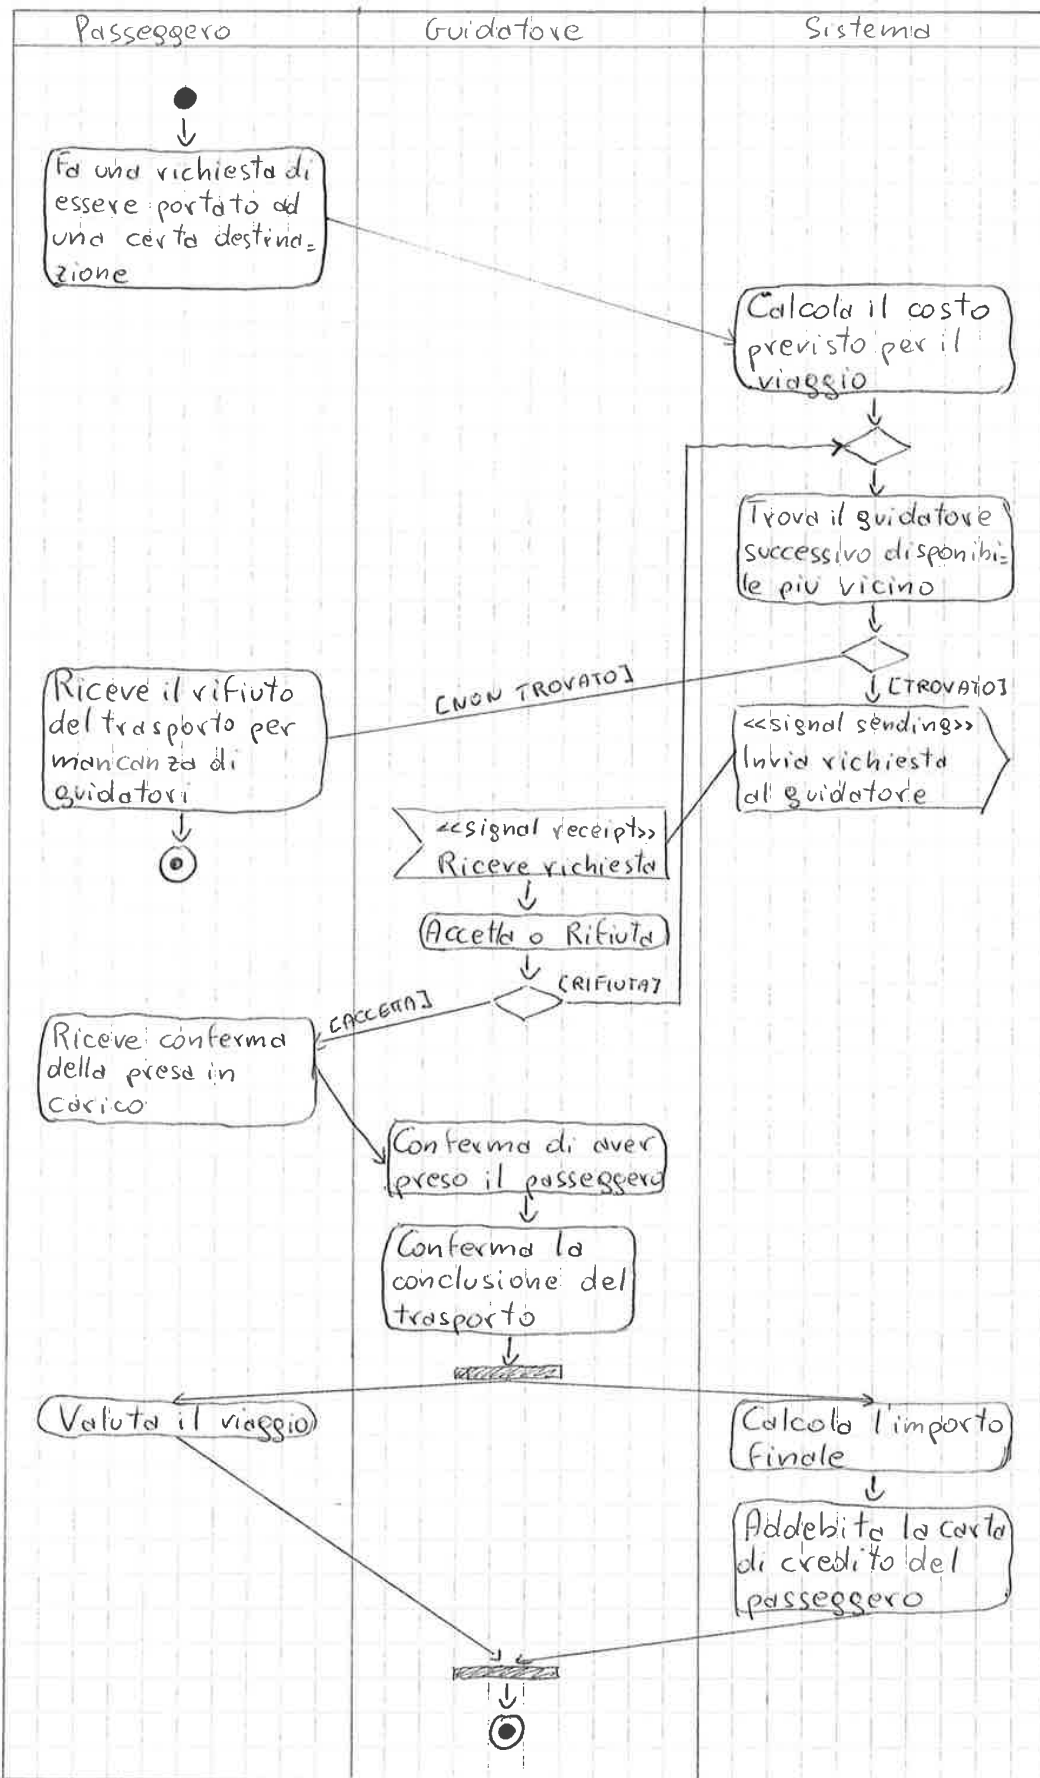 Passeggero
Guidatore
Sistema
Fa una richiesta di
essere portato ad
una certa destina=
zione
Calcola il costo
previsto per il
viaggio
Trova il guidatore
successivo disponibi=
le più vicino
[NON TROVATO]
[TROVATO]
Riceve il rifiuto
del trasporto per
mancanza di
guidatori
<<signal sending>>
Invia richiesta
al guidatore
<<signal receipt>>
Riceve richiesta
Accetta o Rifiuta
[RIFIUTA]
[ACCETTA]
Riceve conferma
della presa in
carico
Conferma di aver
preso il passeggero
Conferma la
conclusione del
trasporto
Valuta il viaggio
Calcola l'importo
finale
Addebita la carta
di credito del
passeggero